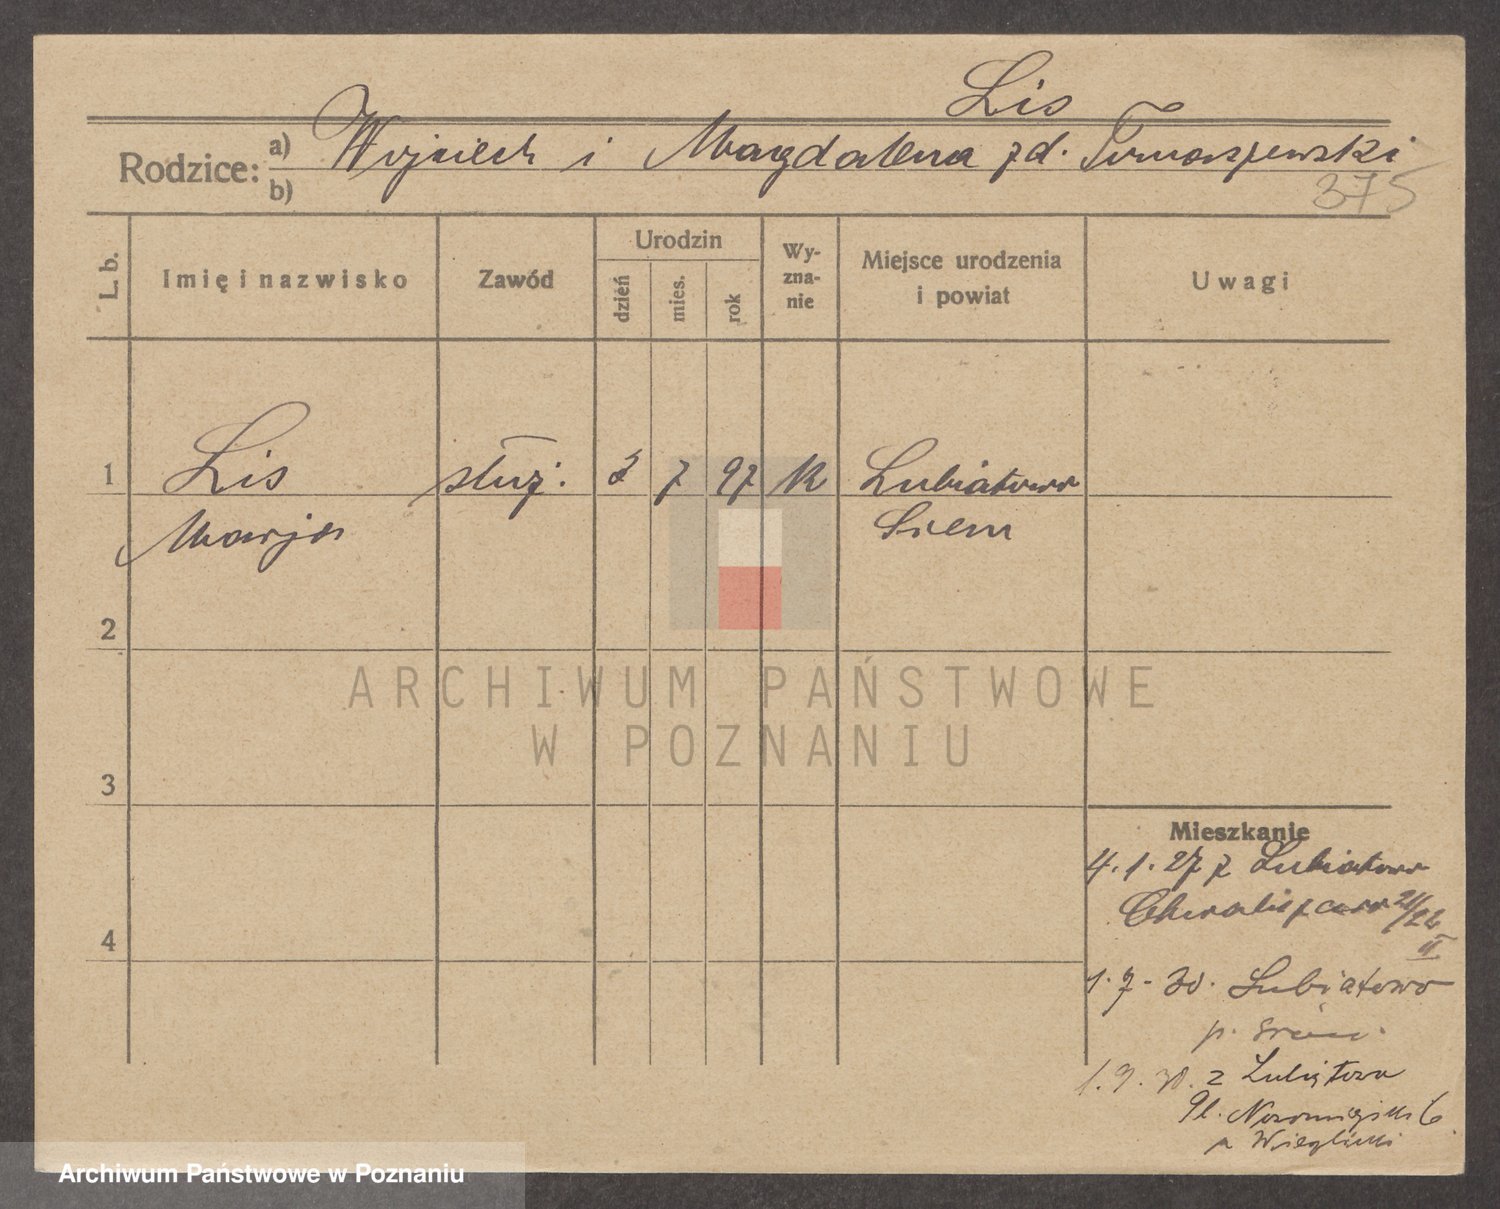 Lis
Rodzice: a) Wojciech i Magdalena zd. Tomaszewski
b)
375
L. b.
Imię i nazwisko
Zawód
Urodzin
dzień
mies.
rok
Wy-
zna-
nie
Miejsce urodzenia
i powiat
Uwagi
1 Lis służ. 2 7 97 k Lubiatowo
Marja Śrem
2
ARCHIWUM PAŃSTWOWE
W POZNANIU
3
Mieszkanie
4.1.27 z Lubiatowo
21/22
II
4
1.7-30. Lubiatowo
p. Śrem
1.9.30. z Lubiatowa
Pl. Nowomiejski 6
Archiwum Państwowe w Poznaniu